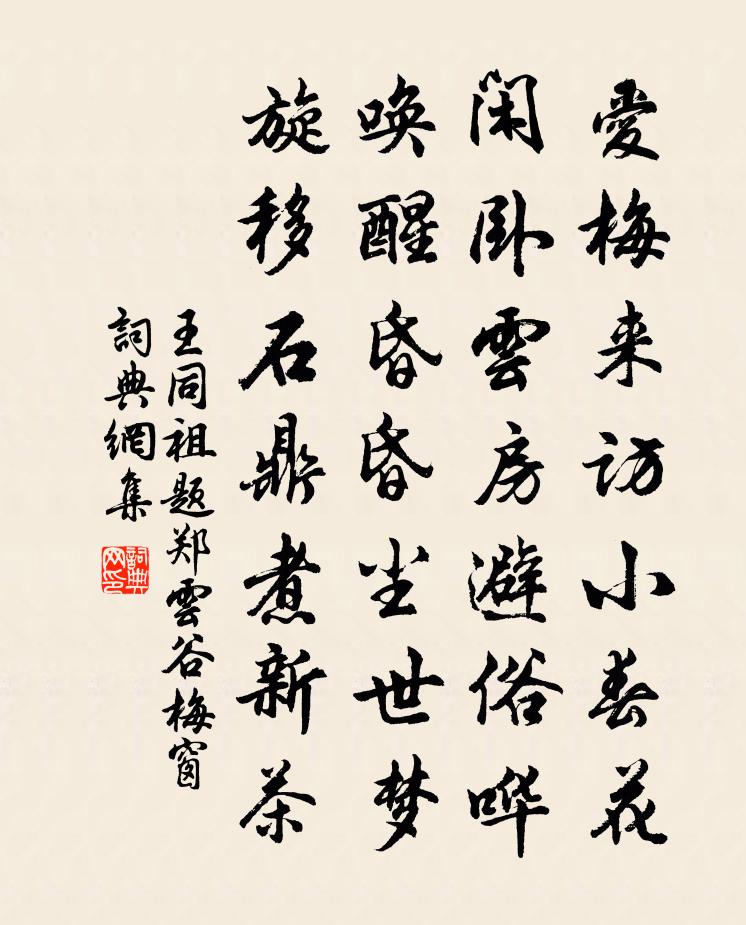 愛梅来访小春花
闲卧雲房避俗哗
唤醒昏昏尘世梦
旋移石鼎煮新茶
王同祖题郑雲谷梅窗
詞典網集
詞典网印